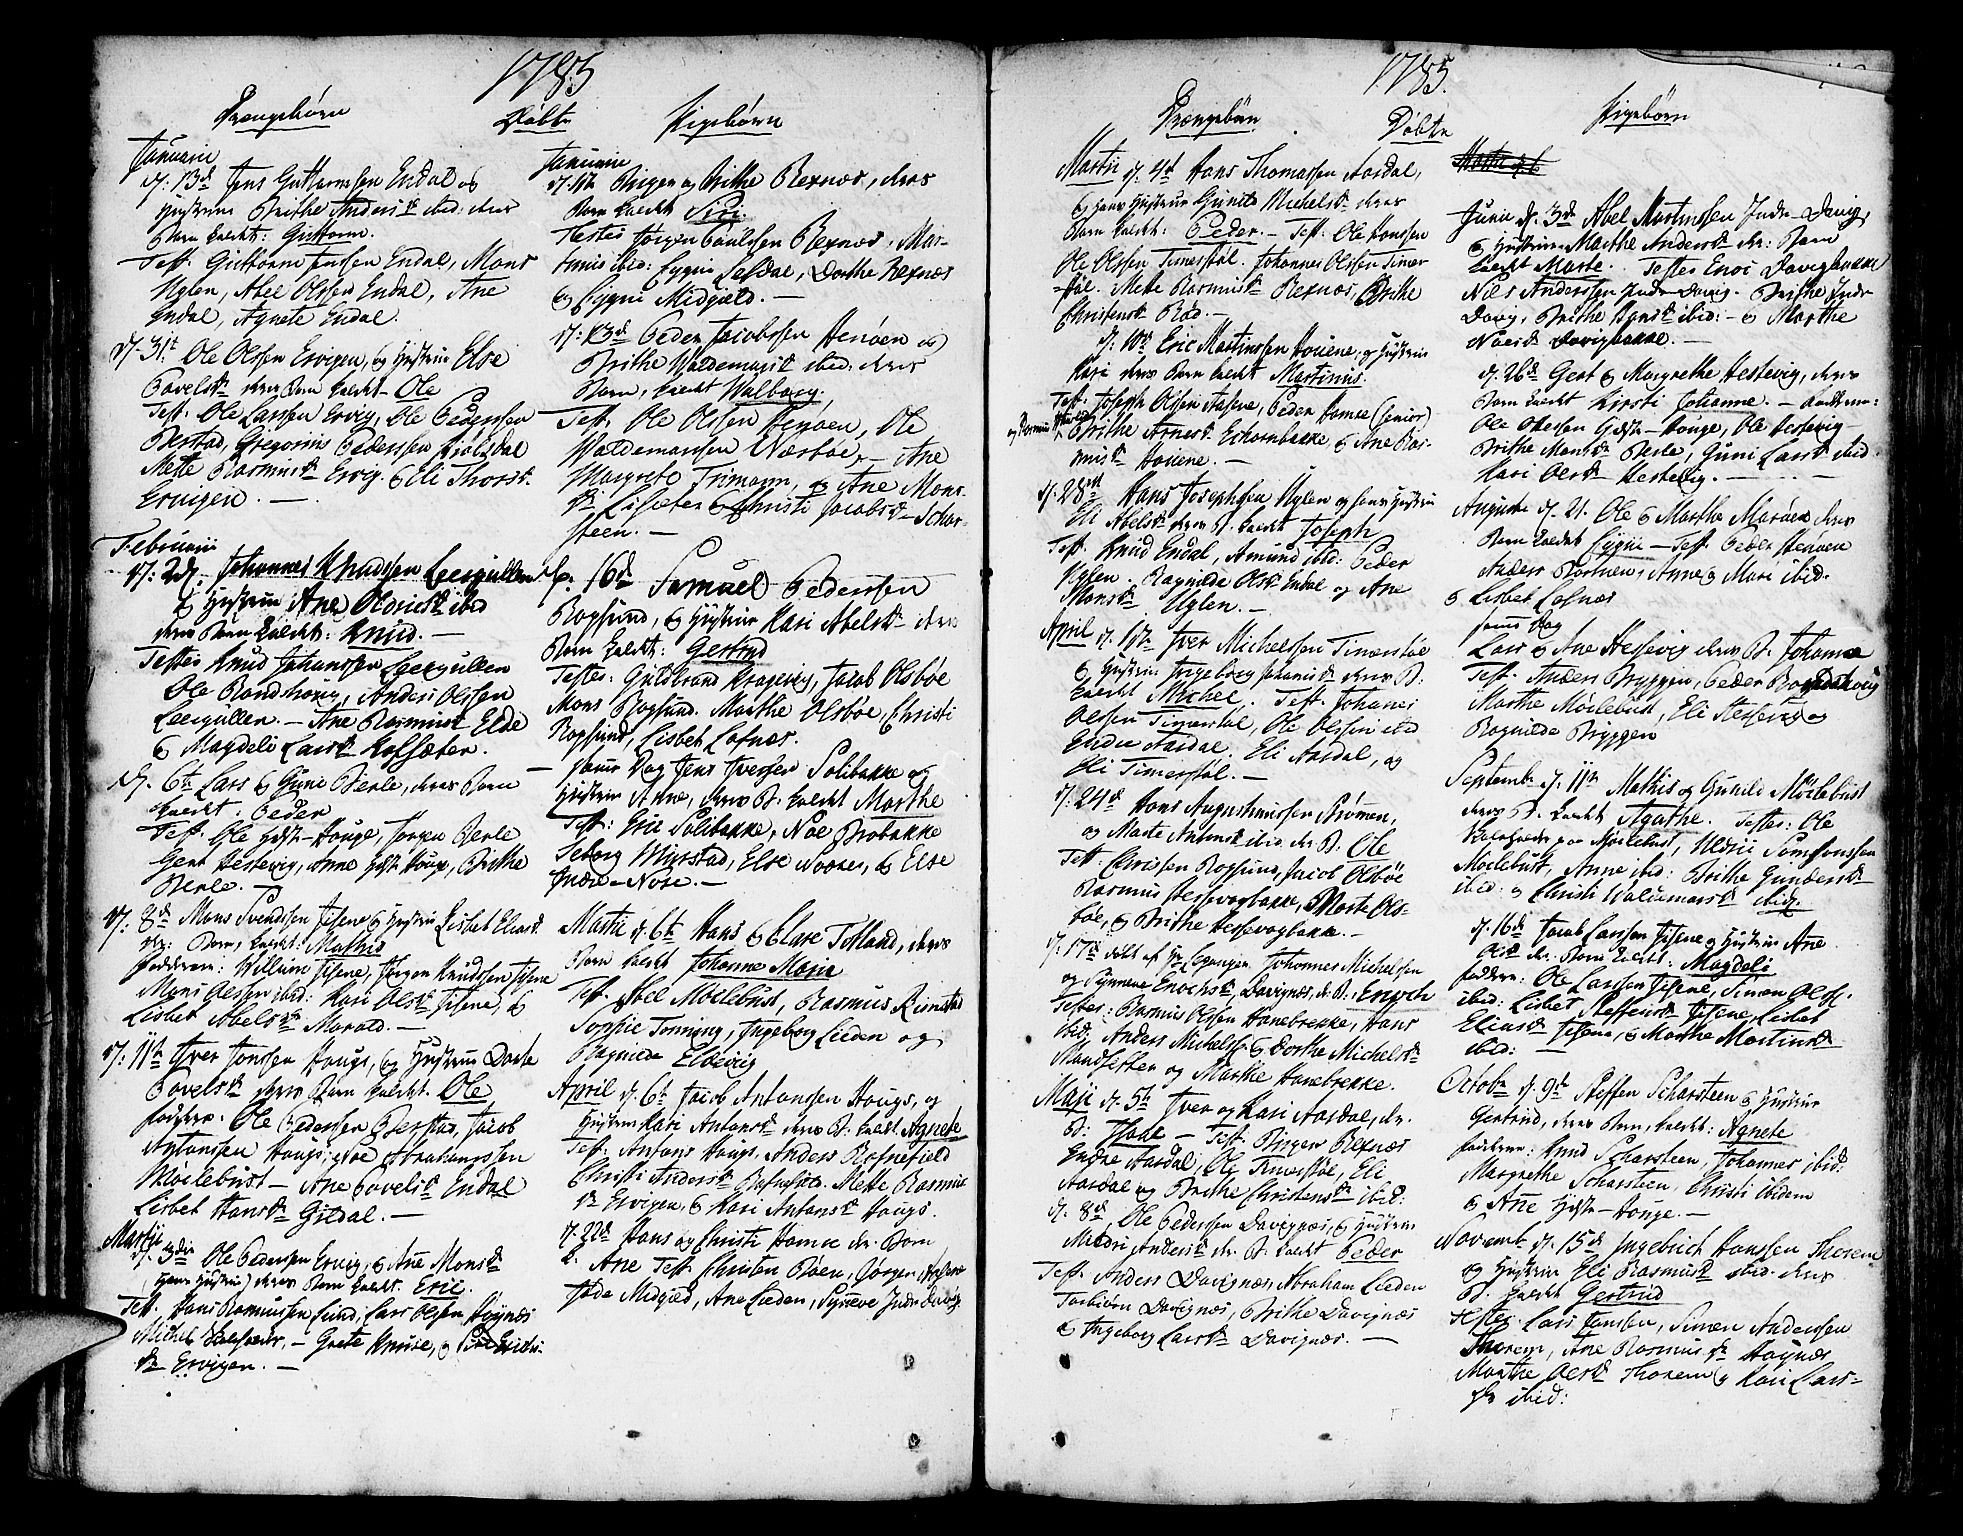 1785
Drengebørn
Døbte
Pigebørn
Januarii
d. 13d Jens Guttormsen Endal og
Hustrue Brithe Andersd. ibid: deres
Barn kaldt: Guttorm.
Test. Guttorm Jensen Endal, Mons
Uglen, Abel Olssen Endal, Ane
Endal, Agnete Endal.
d. 31t Ole Olssen Ervigen, og Hustrue Else
Povelsdr deres Barn kaldt Ole
Test. Ole Larssen Ervig, Ole Pederssen
Berstad, Gregorius Pederssen
Mette Rasmusdr Ervig. & Eli Thorsd.
Ervigen. —
Februarii
d: 2d. Johannes Knudssen Leergullen
& Hustrue Ane ibid
deres Barn kaldt: Knud. —
Testes Knud Johanssen Leergullen
Ole Rand, Anders Olssen
Leergullen. — Ane Rasmusd. Elde
& Magdeli Larsdr.
d. 6te Lars & Guni Berle, deres Barn
kaldt. Peder
Test. Ole Houge, Jørgen Berle
Gert Hestevig, Anne Houge, Brithe
Berle. —
d: 8d Mons Svendssen Fisene & Hustrue Lisbet Eliasd.
der: Barn, kaldt: Mathis
Fadderne: Willum Fisene, Jørgen Knudssen Fisene
Mons Olssen ibid: Kari Olsdr Fisene, &
Lisbet Abelsdr Marøld. —
d: 11te Iver Jonssen Hougs, & Hustrue Dorte
Povelsdr deres Barn kaldt. Ole,
Fadderne. Ole Pederssen Berstad, Jacob
Antonssen Hougs, Noe Abrahamssen
Möclebust — Ane Povelsdr Endal
Lisbet Hansdr Gildal. —
Martii
d. 3die Ole Pederssen Ervig, & Ane Monsdr
(hans Hustrue) deres Barn kaldt. Eric.
Test. Hans Rasmussen Lund, Lars Olsen Høynæs
Michel, — Grete Knuse, &
dr Ervigen. —
Januarii
d. 1te Birgen og Brithe Rexnæs, deres
Barn kaldt Siri.
Testes Jørgen Paulssen Rexnæs, Mar-
tinus ibid: Sygni Leldal, Dorthe Rexnæs
& Sygni Midgield. —
d. 13d Peder Jacobssen Henøen og
Brithe Waldemarsd. ibid: deres
Barn, kaldt Walborg.
Test. Ole Olssen Henøen, Ole
Waldemarssen Næsbøe — Ane
Margrete Frimann, & Ane Mons-
dr Lisæter & Christi Jacobsdr Schar-
steen. —
d. 16d Samuel Pederssen
Rogsund, & Hustrue Kari Abelsdr deres
Barn kaldt: Gertrud
Testes: Guldbrand Kragevig, Jacob Olsbøe
Mons Rogsund. Marthe Olsbøe, Christi
Rogsund, Lisbet Lofnæs.
samme Dag Jens Iverssen Solibakke og
Hustrue Anne, deres B. kaldt Marthe
Test: Eric Solibakke, Noe Brobakke
Seborg Myrstad, Else Noone, & Else
Indre-Nore. —
Martii d. 6te Hans & Clare Totland, deres
Barn kaldt Johanne Marie
Test. Abel Möclebust, Rasmus Rimstad
Sophie Tonning, Ingeborg Lieden og
Ragnilde Elvevig
April d. 6te Jacob Antonssen Hougs, og
Hustrue Kari Antonsdr deres B. kaldt Agnete
Test. Antons Hougs, Anders Rafnefield
Christi Andersdr Rafnefield. Mette Rasmus
dr Ervigen, & Kari Antonsdr Hougs.
d. 22d Hans og Christi Hamre der. Barn
k. Ane Test. Christen Bøen, Jørgen
Ione Midgield, Ane Lieden, Synneve Indre Davig.
1785.
Drengebørn
Døbte
Pigebørn
Martii d. 4d Hans Thomassen Aardal,
& hans Hustrue Gunild Michelsdr deres
Barn kaldt: Peder. — Test. Ole Hanssen
Ole Olssen Timerstøl. Johannes Olssen Timer-
støl. Mette Rasmusdr Rexnæs, Brithe
Christensdr Rød. —
d. 10d Eric Martinssen Houene, & Hustrue
Kari deres Barn kaldt Martinus.
Test. Joseph Olssen Aasene, Peder Hamre (Junior)
og Rasmus
Brithe Arnesdr Echornbakke & Ane Ras-
musdr Houene. —
d. 28de Hans Josephssen Uglen og hans Hustrue
Eli Abelsdr deres B. kaldt Joseph
Test. Knud Endal, Amund ibid: Peder
Uglen. Ragnilde Olsdr Endal og Ane
Monsdr Uglen. —
April d. 1te Iver Michelssen Timerstøl
& Hustrue Ingeborg Johansdr deres B.
kaldt Michel. Test. Johannes
Olssen Timerstøl, Ole Olssen ibid
Endre Aardal, Eli Aardal, og
Eli Timerstøl. —
d. 24d Hans Augustinussen,
og Marte Antonsdr ibid. der. B. Ole
Test. Christen Rogsund, Jacob Olsbøe
Rasmus Hessevogbakke, Marte Ols-
bøe, & Brithe Hessevogbakke. —
d. 17d døbt af Hr Leganger Johannes Michelsen
og Synneve Enochsdr Davignæs, d. B. Enoch
Testes: Rasmus Olssen Hanebrekke, Hans
ibid: Anders Michelss. & Dorthe Michelsdr
Mandseter og Marthe Hanebrekke.
Maji d. 5te Iver og Kari Aardal, der.
B: — Test. Birgen Rexnæs
Endre Aardal, Ole Timerstøl, Eli
Aardal & Brithe Christensdr ibid:
d. 8d Ole Pederssen Davignæs, & Hustrue
Maldri Andersdr der. B. kaldt Peder
Test. Anders Davignæs, Abraham Lieden
Torbiörn Davignæs, Brithe Davignæs
& Ingeborg Larsdr Davignæs. —
Junii d. 3d Abel Martinssen Indr-Davig,
& Hustrue Marthe Andersdr der: Barn
kaldt Marte. Testes Enoc Davigbakke
Niels Anderssen Indre Davig. Brithe Indr
Davig, Brithe Hansdr ibid: — & Marthe
Noesdr Davigbakke. —
d. 26d Gert & Margrethe Hestevig, deres
Barn kaldt Kirsti Johanne. — Fadderne:
Ole Houge, Ole Hestevig
Brithe Monsdr Berle, Guni Larsdr ibid.
Kari Olsdr Hestevig. —
Augusti d. 21. Ole & Marthe Marøen deres
Barn kaldt Sygni — Test. Peder Henøen
Anders, Anne & Mari ibid.
& Lisbet Lofnæs
samme Dag
Lars & Ane Hessevig deres B. Johanne
Test. Anders Bryggen, Peder
Marthe Möclebust, Eli Hessevog og
Ragnilde Bryggen
Septembr d. 11te Mathis og Gunild Möclebust
deres B. kaldt Agathe. Testes: Ole
paa Möclebust, Ulrii Simonssen
Möclebust, Anne ibid: Brithe Gundersdr
ibid: & Christi Waldemarsdr ibid.
d. 16de Jacob Larssen Fisene og Hustrue Ane
Olsd der. Barn kaldt: Magdeli
Faddere: Ole Larssen Fisene, Simon Olss.
ibid: Lisbet Steffensdr Fisene, Lisbet
Eliasdr Fisene, & Marthe Martinsdr
ibid: —
Octobr d. 9d Steffen Scharsteen & Hustrue
Gertrud, deres Barn, kaldt: Agnete
Fadderne: Knud Scharsteen, Johannes ibid:
Margrethe Scharsteen, Christi ibidem
& Ane Houge. —
Novemb. d. 15de Ingebricht Hanssen Thorem
og Hustrue Eli Rasmusd ibid. deres
B. kaldt Gertrud
Testes. Lars Janssen, Simon Anderssen
Thorem, Ane Rasmusdr Høynæs
Marthe Olsdr Thorem & Kari Lars-
dr ibid: